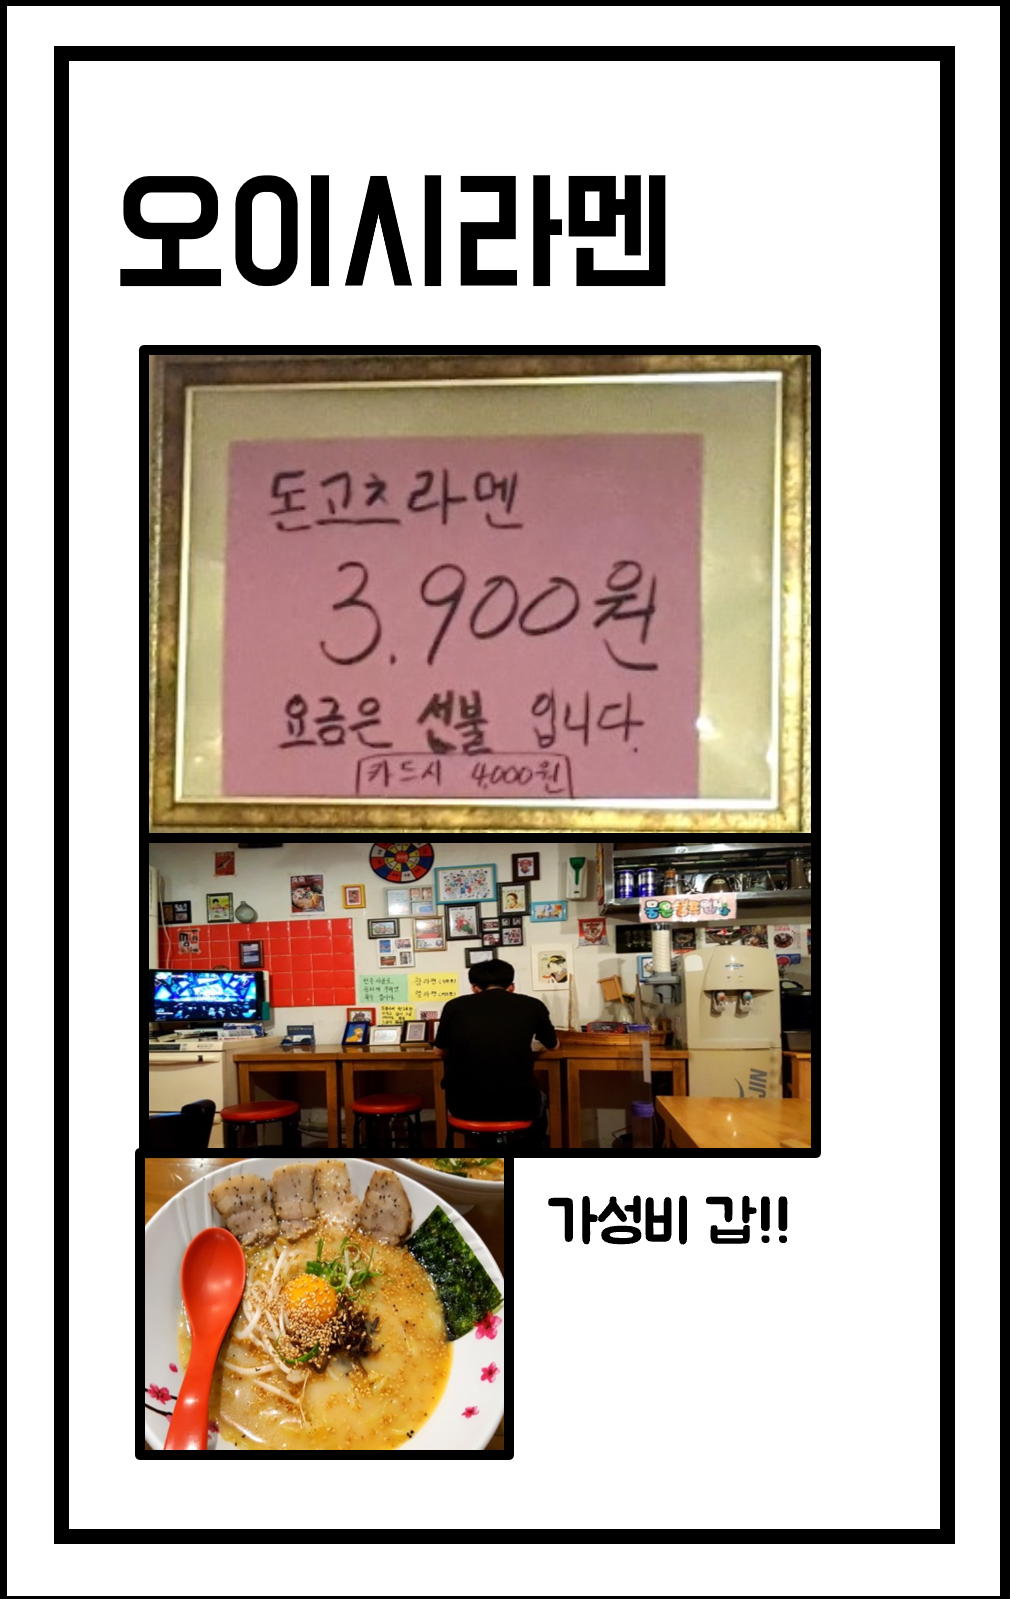 오이시라멘
돈고츠라멘
3.900원
요금은 선불 입니다.
카드시 4,000원
물은셀프
JIN
가성비 갑!!